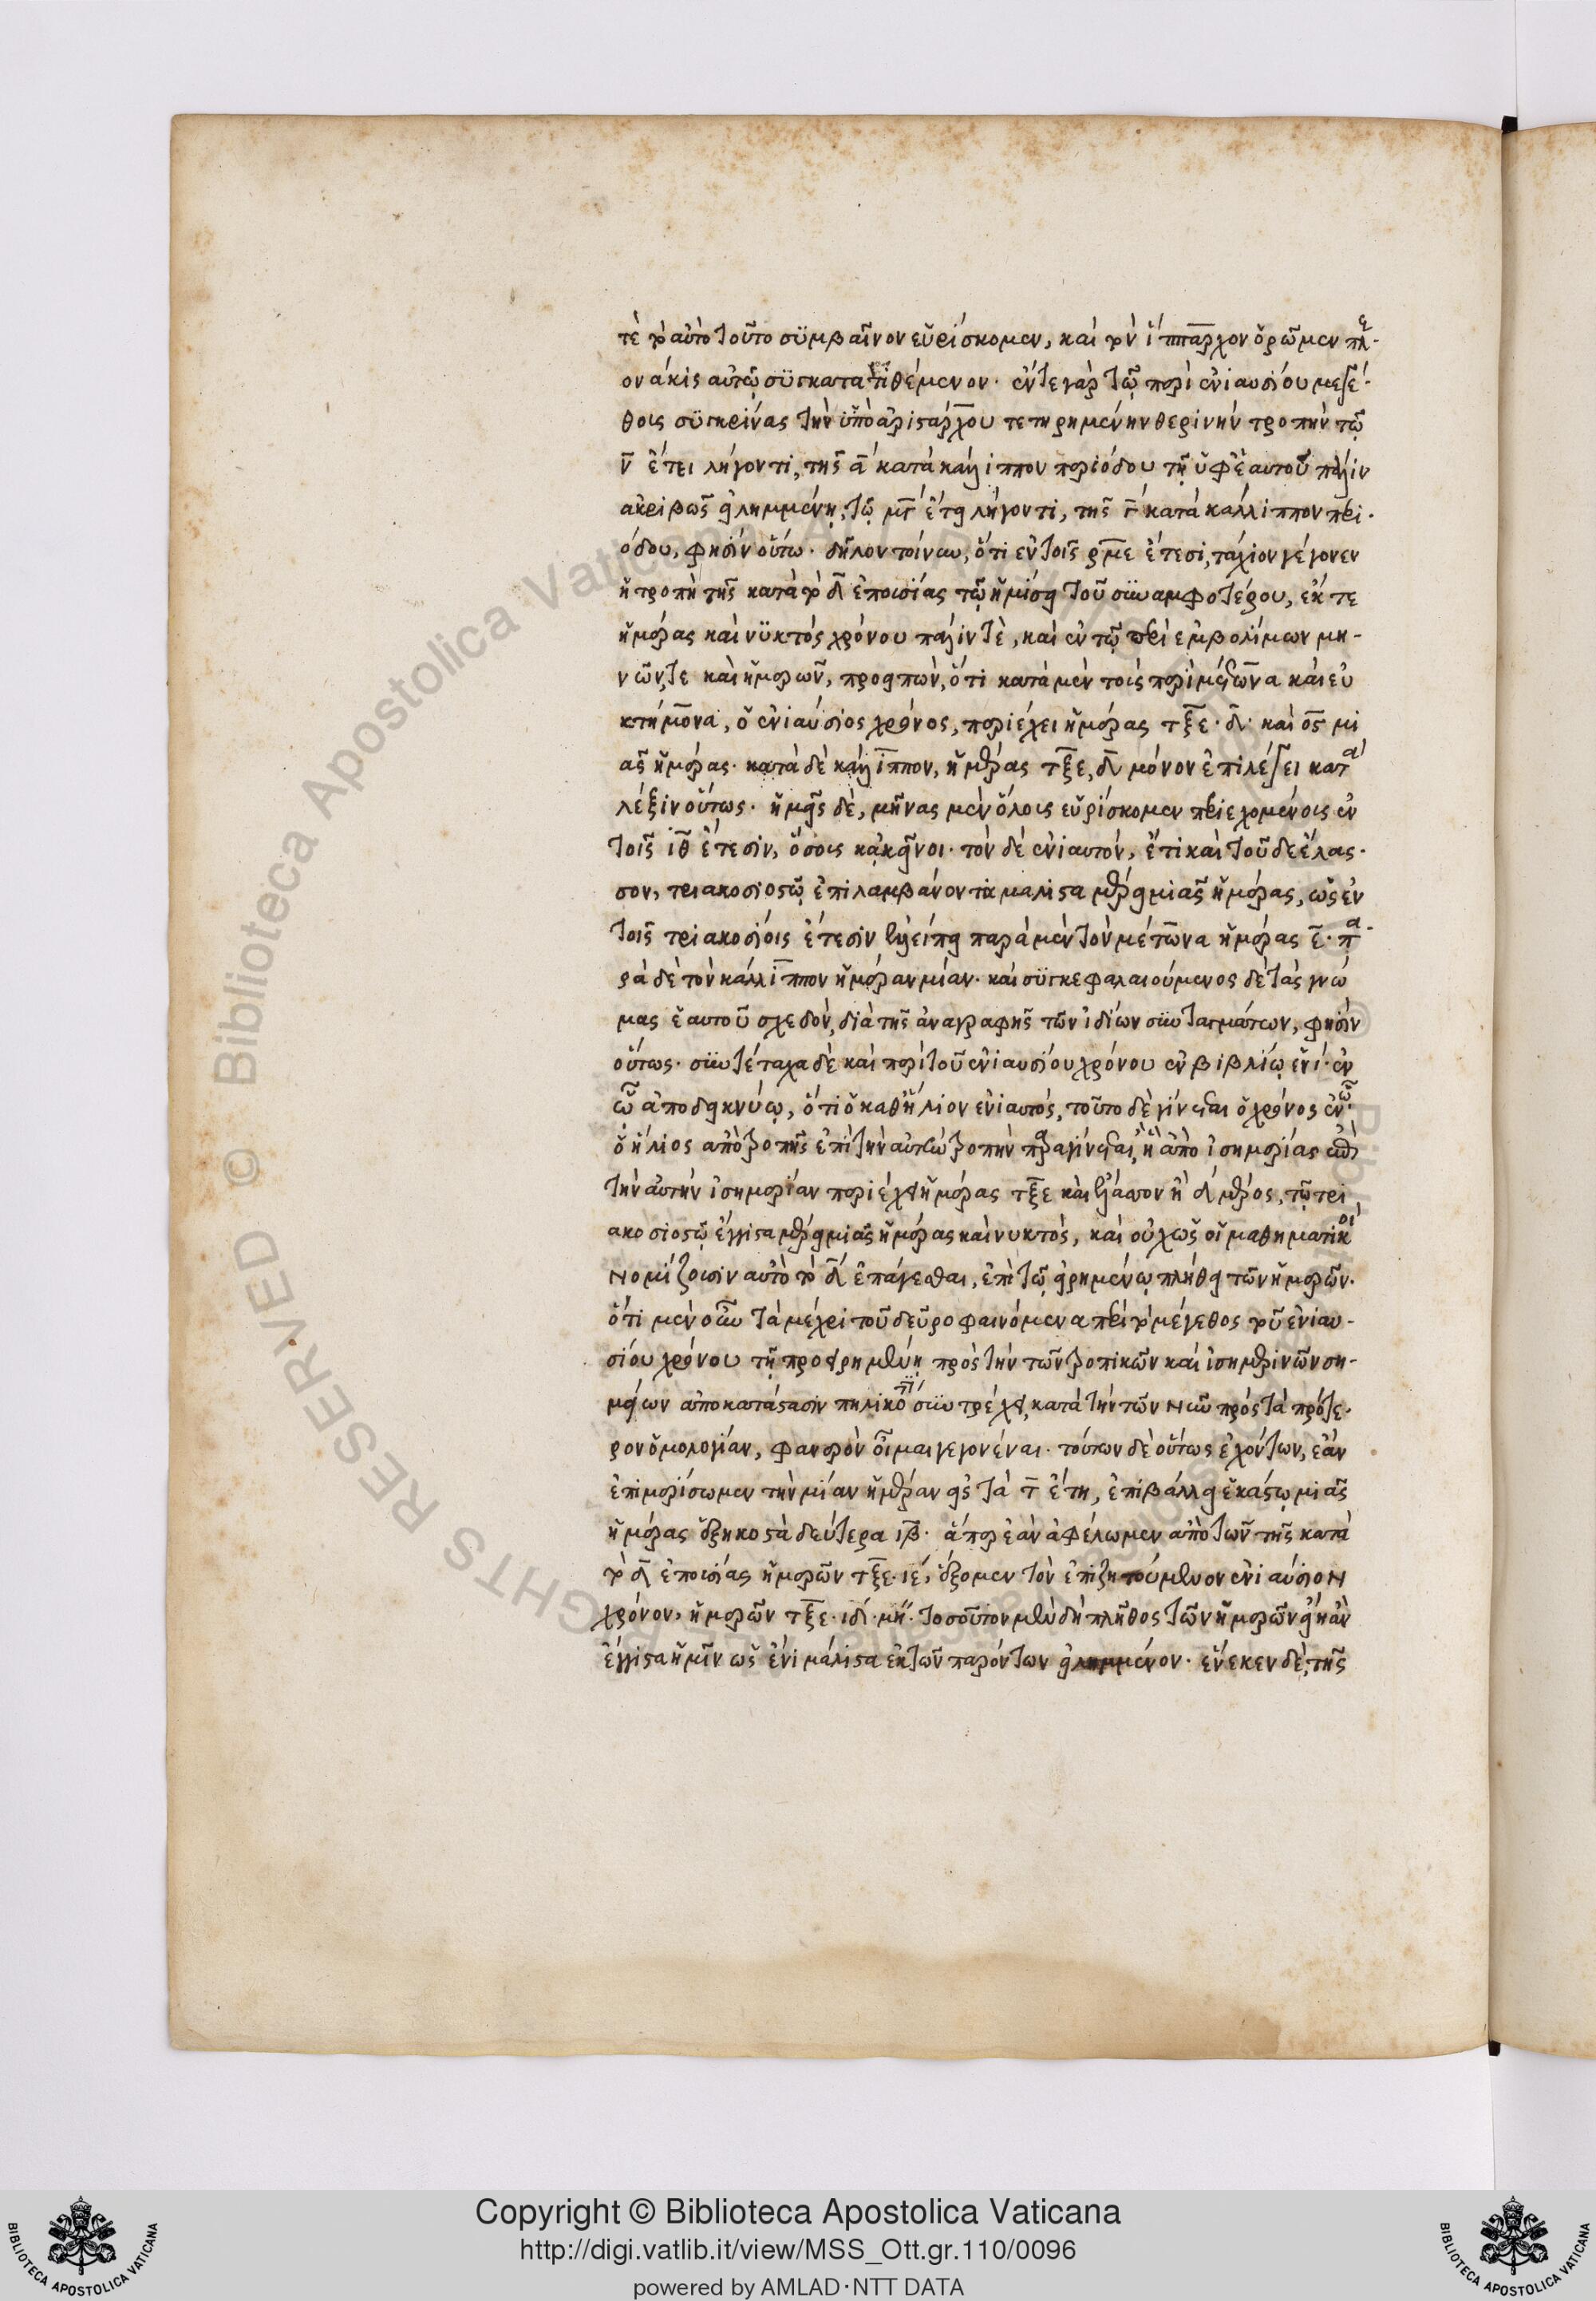 τὲ τὸ αὐτὸ τοῦτο συμβαῖνον εὑρίσκομεν, καὶ τὸν ἵππαρχον ὁρῶμεν πλε-
ονάκις αὐτῷ συγκατατιθέμενον· ἔν τε γὰρ τῷ περὶ ἐνιαυσίου μεγέ-
θους συγκρίνας τὴν ὑπὸ ἀριστάρχου τετηρημένην θερινὴν τροπὴν τῷ
ν̄ ἔτει λήγοντι, τῆς ᾱ κατὰ κάλλιππον περιόδου τῇ ὑφ' ἑαυτοῦ πάλιν
ἀκριβῶς εἰλημμένῃ, τῷ μ̄γ ἔτει λήγοντι, τῆς γ̄ κατὰ κάλλιππον περι-
όδου, φησὶν οὕτω· δῆλον τοίνυν, ὅτι ἐν τοῖς ρ̄μ̄ε ἔτεσι, τάχιον γέγονεν
ἡ τροπὴ τῆς κατὰ τὸ δ̄ ἐπουσίας τῷ ἡμίσει τοῦ συναμφοτέρου, ἔκ τε
ἡμέρας καὶ νυκτὸς χρόνου πάλιν τὲ, καὶ ἐν τῷ περὶ ἐμβολίμων μη-
νῶν, τε καὶ ἡμερῶν, προειπὼν, ὅτι κατὰ μὲν τοὺς περὶ μέτωνα καὶ εὐ
κτήμονα, ὁ ἐνιαύσιος χρόνος, περιέχει ἡμέρας τ̄ξ̄ε· δ̄· καὶ ος̄ μι
ᾶς ἡμέρας· κατὰ δὲ κάλλιππον, ἡμέρας τ̄ξ̄ε, δ̄ μόνον ἐπιλέγει κατὰ
λέξιν οὕτως· ἡμεῖς δὲ, μῆνας μὲν ὅλους εὑρίσκομεν περιεχομένους ἐν
τοῖς ῑθ̄ ἔτεσιν, ὅσους κἀκεῖνοι· τὸν δὲ ἐνιαυτόν, ἔτι καὶ τοῦ δε ἔλας-
σον, τριακοσιοστῷ ἐπιλαμβάνοντα μάλιστα μέρει μιᾶς ἡμέρας, ὡς ἐν
τοῖς τριακοσίοις ἔτεσιν ἐλλείπει παρὰ μὲν τὸν μέτωνα ἡμέρας ε̄· πα-
ρὰ δὲ τὸν κάλλιππον ἡμέραν μίαν· καὶ συγκεφαλαιούμενος δὲ τὰς γνώ
μας ἑαυτοῦ σχεδὸν, διὰ τῆς ἀναγραφῆς τῶν ἰδίων συνταγμάτων, φησὶν
οὕτως· συντέταχα δὲ καὶ περὶ τοῦ ἐνιαυσίου χρόνου ἐν βιβλίῳ ἑνί· ἐν
ᾧ ἀποδεικνύω, ὅτι ὁ καθ' ἥλιον ἐνιαυτός, τοῦτο δὲ γίνεται ὁ χρόνος ἐν ᾧ
ὁ ἥλιος ἀπὸ τροπῆς ἐπὶ τὴν αὐτὴν τροπὴν παραγίνεται, ἢ ἀπὸ ἰσημερίας ἐπὶ
τὴν αὐτὴν ἰσημερίαν περιέχει ἡμέρας τ̄ξ̄ε καὶ ἔλαττον ἢ δ̄ μέρος, τῷ τρι
ακοσιοστῷ ἔγγιστα μέρει μιᾶς ἡμέρας καὶ νυκτὸς, καὶ οὐχ ὡς οἱ μαθηματικοὶ
νομίζουσιν αὐτὸ τὸ δ̄ ἐπάγεσθαι, ἐπὶ τῷ εἰρημένῳ πλήθει τῶν ἡμερῶν·
ὅτι μὲν οὖν τὰ μέχρι τοῦ δεῦρο φαινόμενα περὶ τὸ μέγεθος τοῦ ἐνιαυ-
σίου χρόνου τῇ προειρημένῃ πρὸς τὴν τῶν τροπικῶν καὶ ἰσημερινῶν ση-
μείων ἀποκατάστασιν πηλικότητι συντρέχει, κατὰ τὴν τῶν νῦν πρὸς τὰ πρότε-
ρον ὁμολογίαν, φανερὸν οἶμαι γεγονέναι· τούτων δὲ οὕτως ἐχόντων, ἐὰν
ἐπιμερίσωμεν τὴν μίαν ἡμέραν εἰς τὰ τ̄ ἔτη, ἐπιβάλλει ἑκάστῳ μιᾶς
ἡμέρας ἑξηκοστὰ δεύτερα ῑβ̄· ἅπερ ἐὰν ἀφέλωμεν ἀπὸ τῶν τῆς κατὰ
τὸ δ̄ ἐπουσίας ἡμερῶν τ̄ξ̄ε· ιέ, ἕξομεν τὸν ἐπιζητούμενον ἐνιαύσιον
χρόνον, ἡμερῶν τ̄ξ̄ε· ιδ· μη· τοσοῦτον μὲν δὴ πλῆθος τῶν ἡμερῶν εἴη ἂν
ἔγγιστα ἡμῖν ὡς ἔνι μάλιστα ἐκ τῶν παρόντων εἰλημμένον· ἕνεκεν δὲ, τῆς
© Biblioteca Apostolica Vaticana
ALL RIGHTS RESERVED
Copyright © Biblioteca Apostolica Vaticana
http://digi.vatlib.it/view/MSS_Ott.gr.110/0096
powered by AMLAD·NTT DATA
BIBLIOTECA APOSTOLICA VATICANA
BIBLIOTECA APOSTOLICA VATICANA